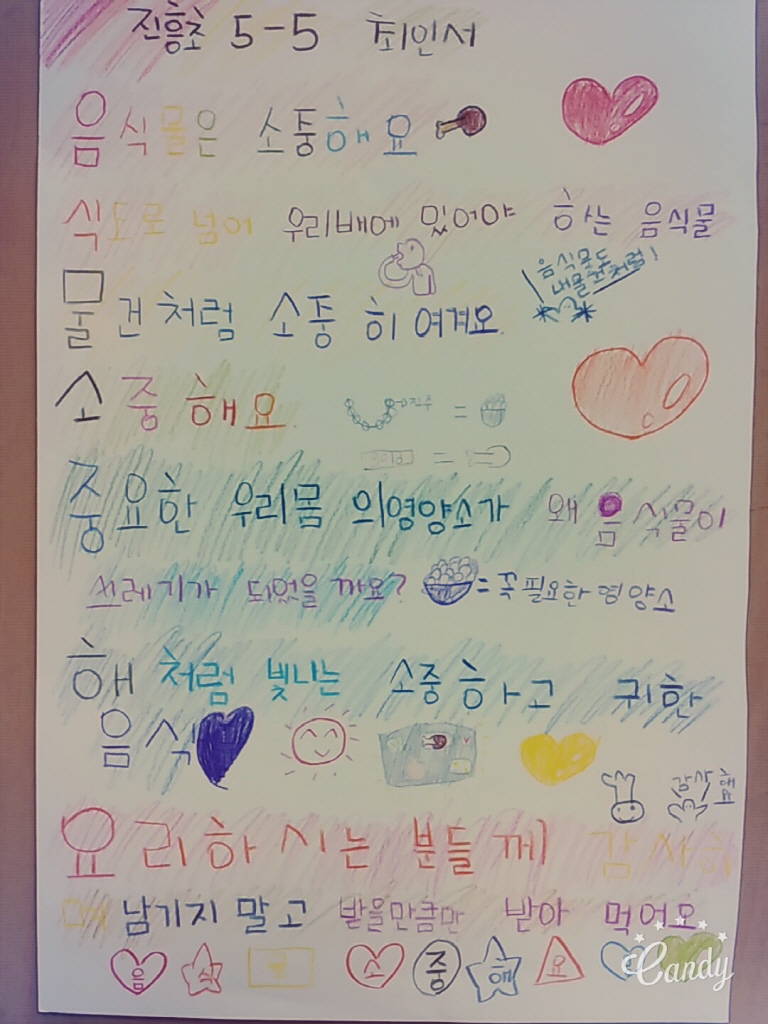 진흥초 5-5 최인서
음식물은 소중해요
식도로 넘어 우리배에 있어야 하는 음식물
음식물도
내물건처럼!
물건처럼 소중히 여겨요.
소중해요.
진주
=
=
중요한 우리몸의영양소가 왜 음식물이
쓰레기가 되었을까요? = 꼭 필요한 영양소
해처럼 빛나는 소중하고 귀한
음식
감사해요
요리하시는 분들께 감사하
며 남기지 말고 받을만큼만 받아 먹어요
음 식 물 소 중 해 요
Candy